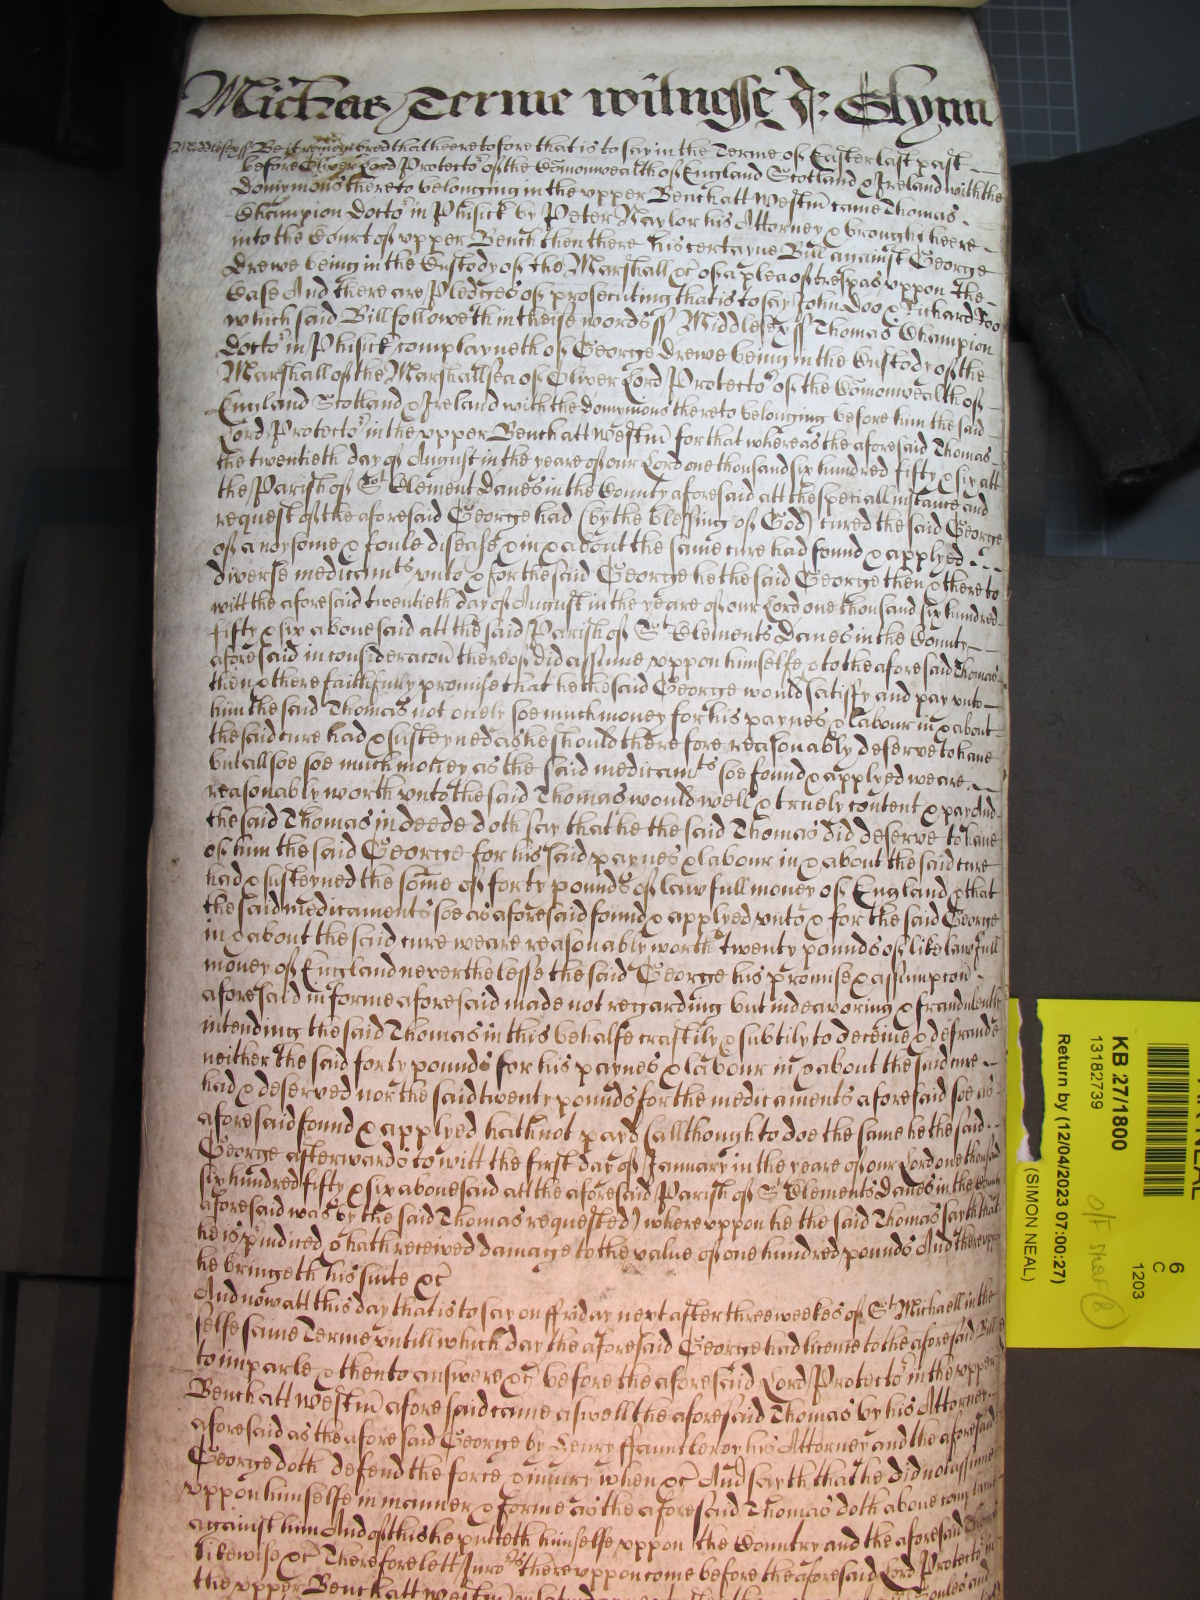 Michas Terme witnesse J: Glynn
Middlesex ss Be it remembred that heeretofore that is to say in the Terme of Easter last past
before Oliver Lord Protector of the Comonwealth of England Scotland & Ireland with the
dominions thereto belonging in the upper Bench att Westm came Thomas
Champion Doctor in Phisick by Peter Naylor his Attorney & brought heere
into the Court of upper Bench then there his certayne Bill against George
Drewe being in the Custody of the Marshall &c of a plea of trespas uppon the
Case And there are Pledges of prosecuting that is to say John Doo & Richard Roo
which said Bill followeth in theise words ss Middlesex ss Thomas Champion
Doctor in Phisick complayneth of George Drewe being in the Custody of the
Marshall of the Marshallsea of Oliver Lord Protector of the Comonwealth of
England Scotland & Ireland with the dominions thereto belonging before him the said
Lord Protector in the upper Bench att Westm for that whereas the aforesaid Thomas
the twentieth day of August in the yeare of our Lord one thousand six hundred fifty & six att
the Parish of St Clement Danes in the County aforesaid att the speciall instance and
request of the aforesaid George had (by the blessing of God) cured the said George
of a noysome & foule disease & in & about the same cure had found & applyed
diverse medicamts unto & for the said George he the said George then & there to
witt the aforesaid twentieth day of August in the yeare of our Lord one thousand six hundred
fifty & six abovesaid att the said Parish of St Clements Danes in the County
aforesaid in consideracon thereof did assume uppon himselfe & to the aforesaid Thomas
then & there faithfully promise that he the said George would satisfy and pay unto
him the said Thomas not onely soe much money for his paynes & labour in & about
the said cure had & susteyned as he should therefore reasonably deserve to have
but allsoe soe much money as the said medicamts soe found & applyed weare
reasonably worth unto the said Thomas would well & truely content & pay And
the said Thomas in deede doth say that he the said Thomas did deserve to have
of him the said George for his said paynes & labour in & about the said cure
had & susteyned the some of forty pounds of lawfull money of England & that
the said medicaments soe as aforesaid found & applyed unto & for the said George
in & about the said cure weare reasonably worth twenty pounds of like lawfull
money of England neverthelesse the said George his promise & assumpcon
aforesaid in forme aforesaid made not regarding but indeavoring & fraudulently
intending the said Thomas in this behalfe craftily & subtily to deceive & defraude
neither the said forty pounds for his paynes & labour in & about the said cure
had & deserved nor the said twenty pounds for the medicaments aforesaid soe as
aforesaid found & applyed hath not payd (allthough to doe the same he the said
George afterwards to witt the first day of January in the yeare of our Lord one thousand
six hundred fifty & six abovesaid att the aforesaid Parish of St Clements Danes in the County
aforesaid was by the said Thomas requested) whereuppon he the said Thomas sayth that
he is p'iudiced & hath received damage to the value of one hundred pounds And thereuppon
he bringeth his suite &c
And now att this day that is to say on ffriday next after three weekes of St Michaell in the
selfe same Terme untill which day the aforesaid George had licence to the aforesaid Bill
to imparle & then to answere &c before the aforesaid Lord Protector in the upper
Bench att Westm aforesaid came aswell the aforesaid Thomas by his Attorney
aforesaid as the aforesaid George by Henry ffauntleroy his Attorney and the aforesaid
George doth defend the force & iniury when &c And sayth that he did not assume
uppon himselfe in manner & forme as the aforesaid Thomas doth above complaine
against him And of this he putteth himselfe uppon the Country and the aforesaid Thomas
likewise &c Therefore lett Jurors thereuppon come before the aforesaid Lord Protector in
the upper Bench att Westm
KB 27/1800
13182739
Return by (12/04/2023 07:00:27)
(SIMON NEAL)
6
C
1203